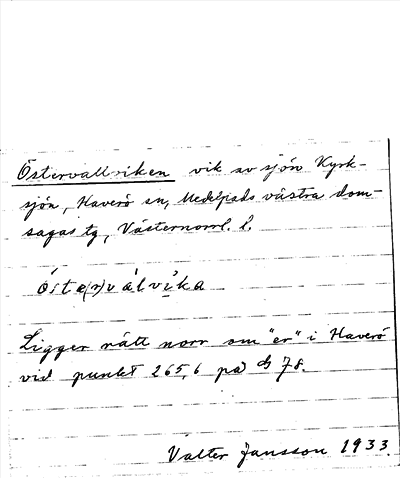 Östervallviken vik av sjön Kyrk-
sjön, Haverö sn, Medelpads västra dom-
sagas tg, Västernorrl. l.
östa(r)válvika
Ligger rätt norr om "er" i Haverö
vid punkt 265,6 på G 78.
Valter Jansson 1933.